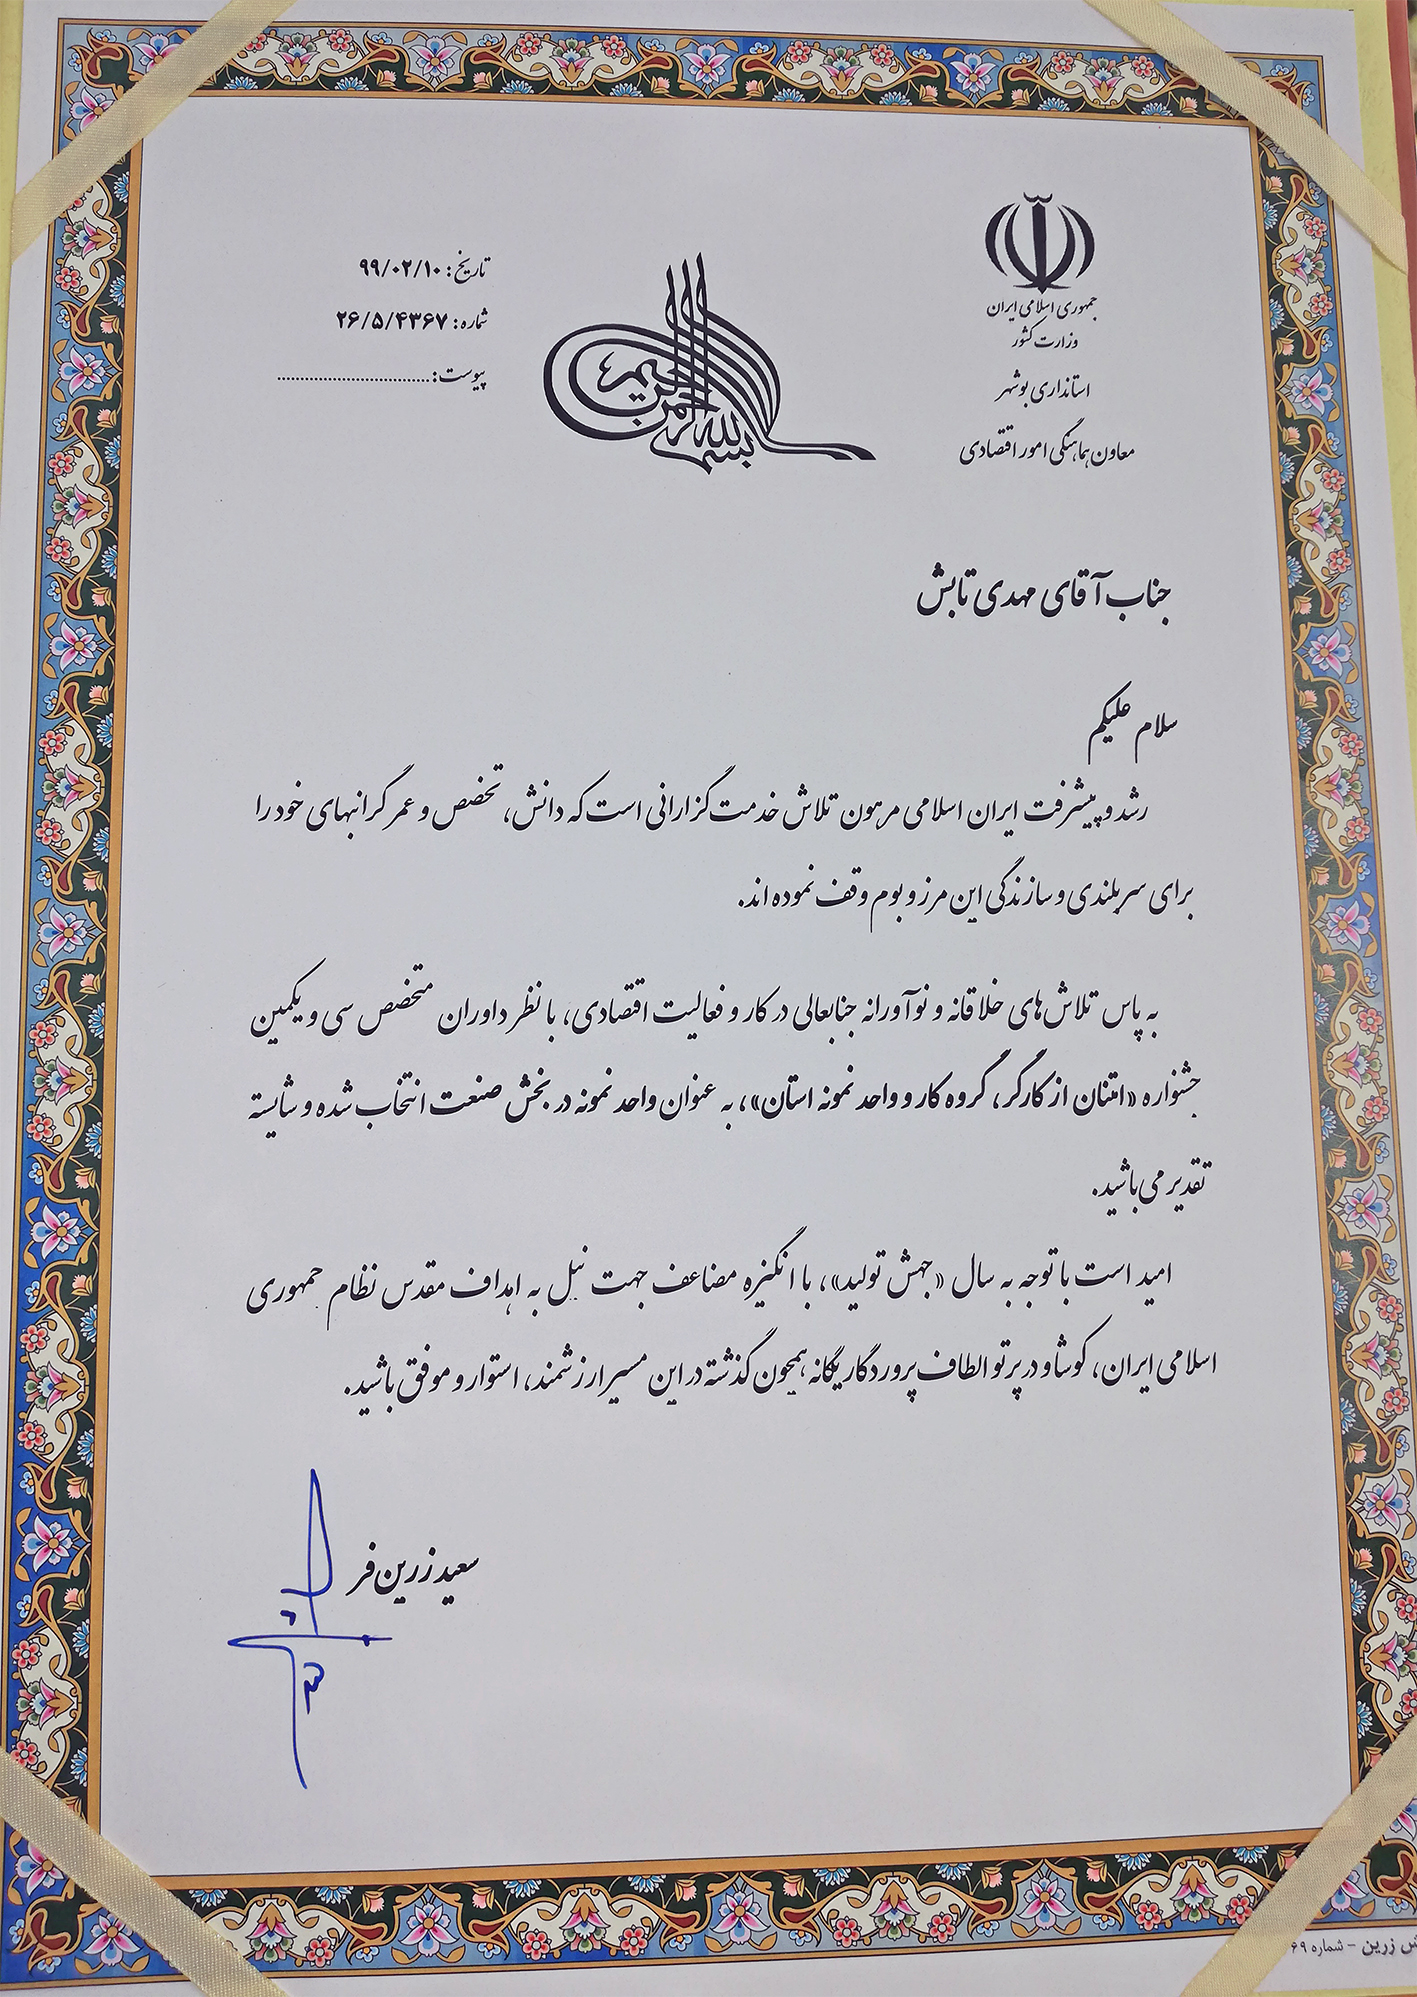 جمهوری اسلامی ایران
وزارت کشور
استانداری بوشهر
معاون هماهنگی امور اقتصادی
بسم الله الرحمن الرحیم
تاریخ: ۹۹/۰۲/۱۰
شماره: ۲۶/۵/۴۳۶۷
پیوست: ................................
جناب آقای مهدی تابش
سلام علیکم
رشد و پیشرفت ایران اسلامی مرهون تلاش خدمت گزارانی است که دانش، تخصص و عمر گرانبهای خود را
برای سربلندی و سازندگی این مرز و بوم وقف نموده اند.
به پاس تلاش‌های خلاقانه و نوآورانه جنابعالی در کار و فعالیت اقتصادی، با نظر داوران متخصص سی و یکمین
جشنواره «امتنان از کارگر، گروه کار و واحد نمونه استان»، به عنوان واحد نمونه در بخش صنعت انتخاب شده و شایسته
تقدیر می باشید.
امید است با توجه به سال «جهش تولید»، با انگیزه مضاعف جهت نیل به اهداف مقدس نظام جمهوری
اسلامی ایران، کوشا و در پرتو الطاف پروردگار یگانه، همچون گذشته در این مسیر ارزشمند، استوار و موفق باشید.
سعید زرین فر
زرین - شماره ۶۹